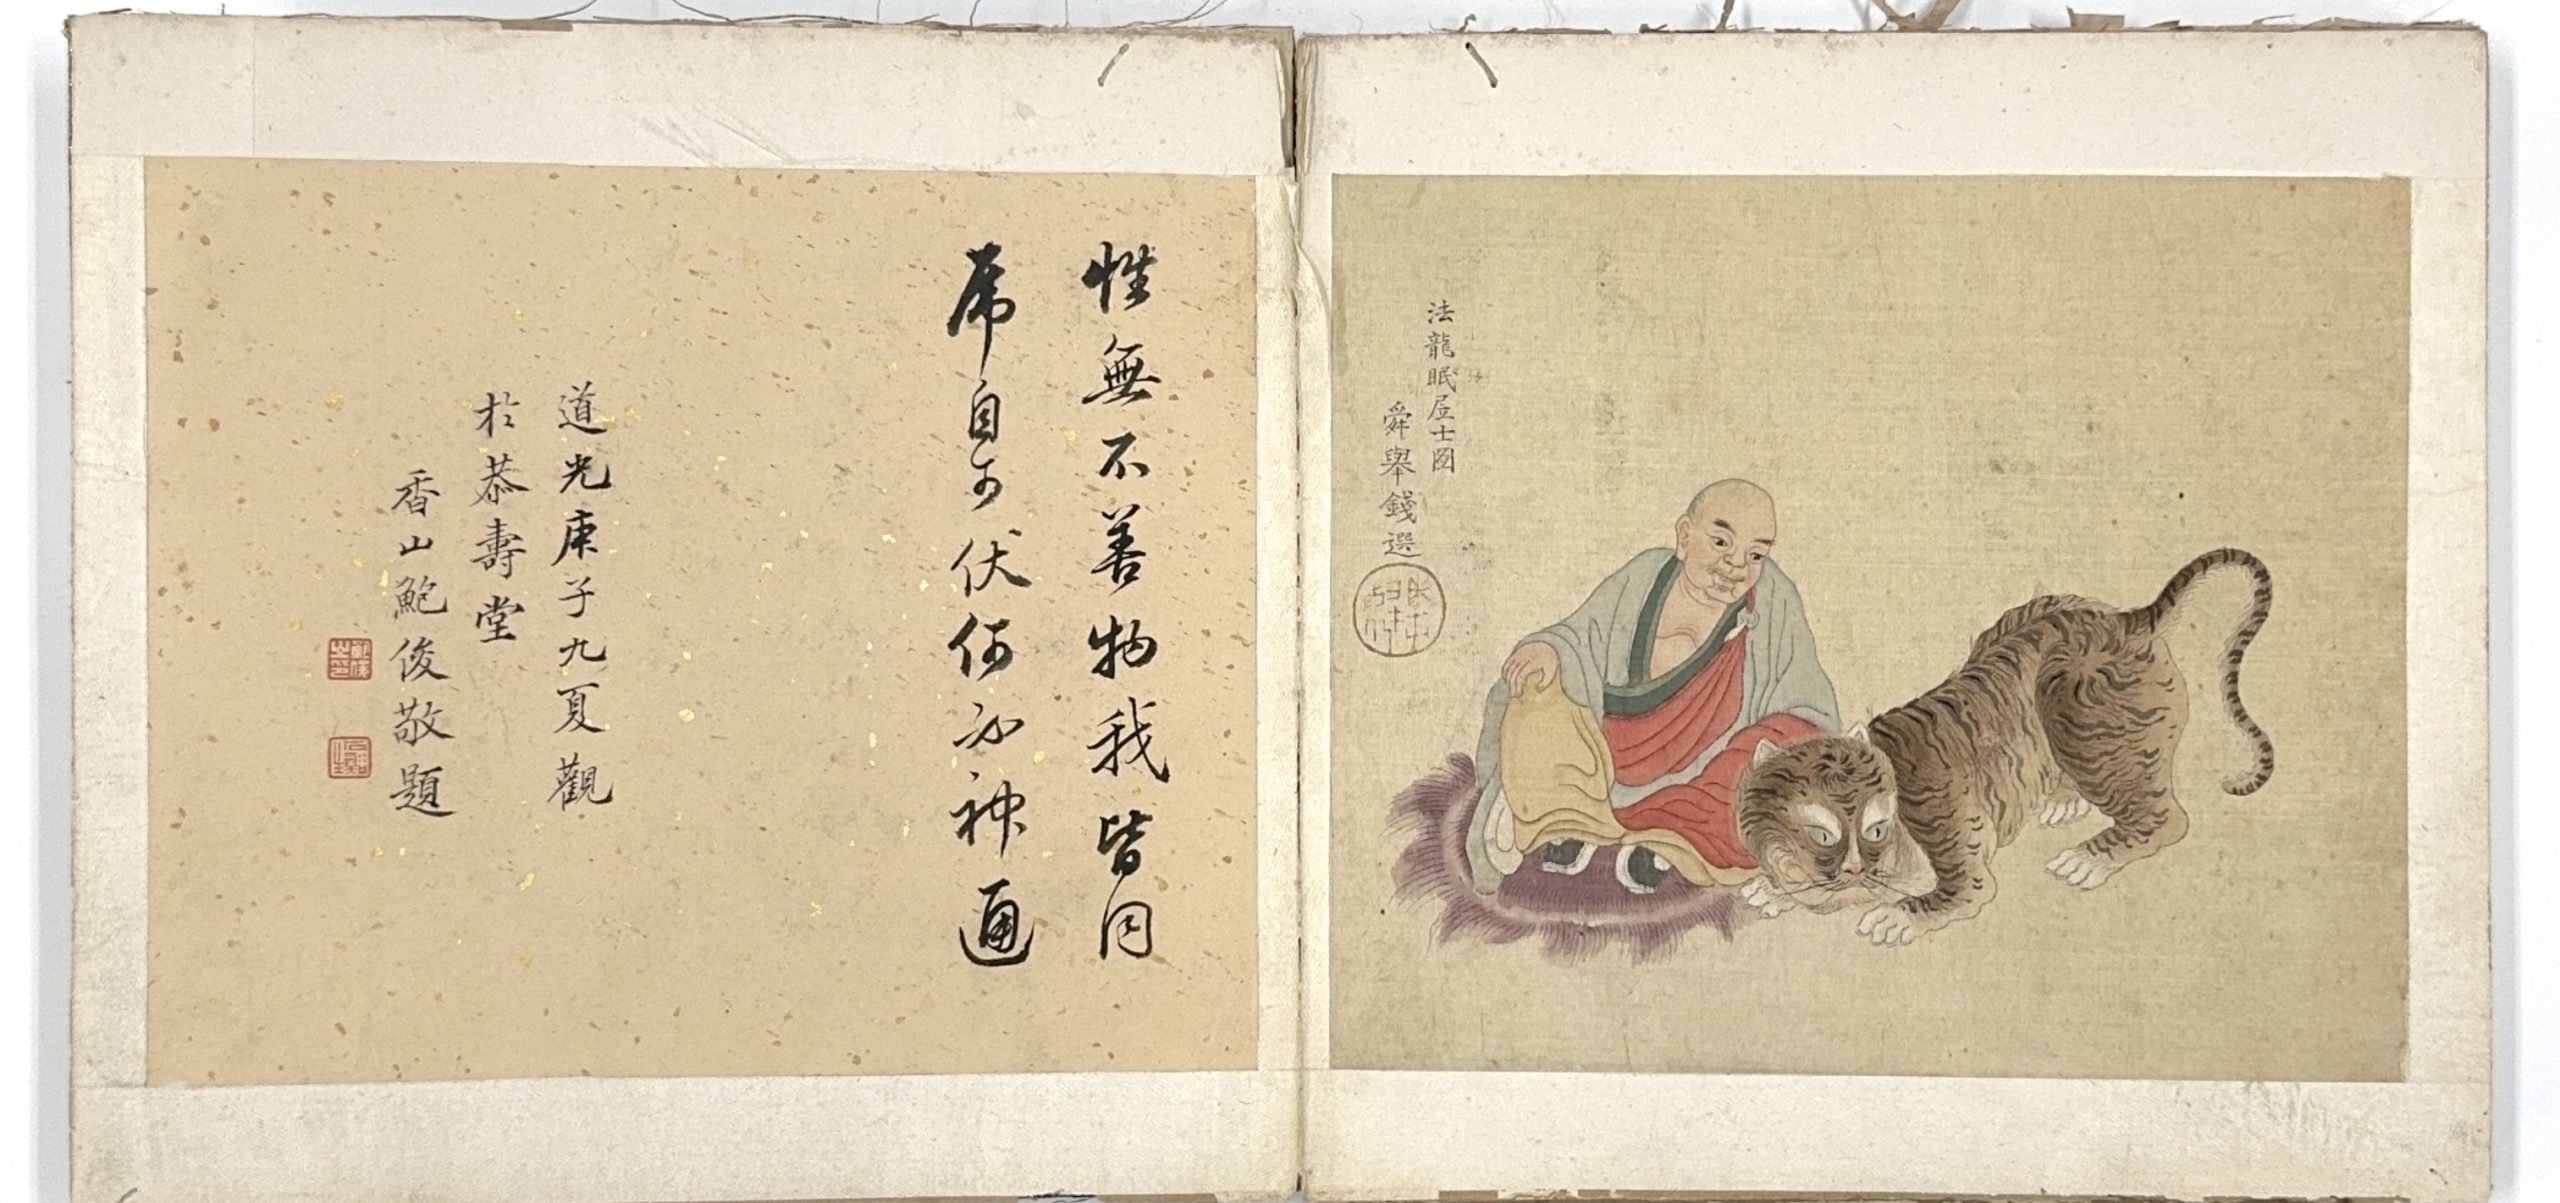 法龍眠居士圖
舜舉錢選
性無不善物我皆同
虎自可伏何必神通
道光庚子九夏觀
於恭壽堂
香山鮑俊敬題